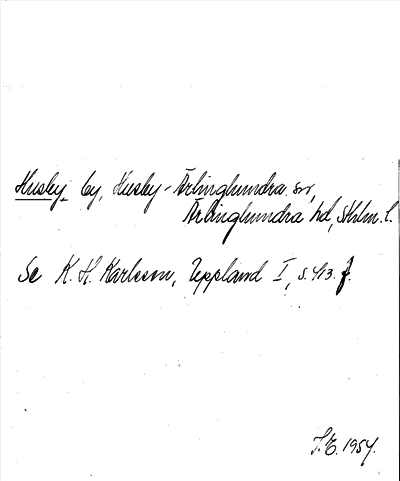 Husby, by, Husby-Ärlinghundra sn,
Ärlinghundra hd, Sthlm. l.
Se K. H. Karlsson, Uppland I, s. 413 f.
S.E. 1954.